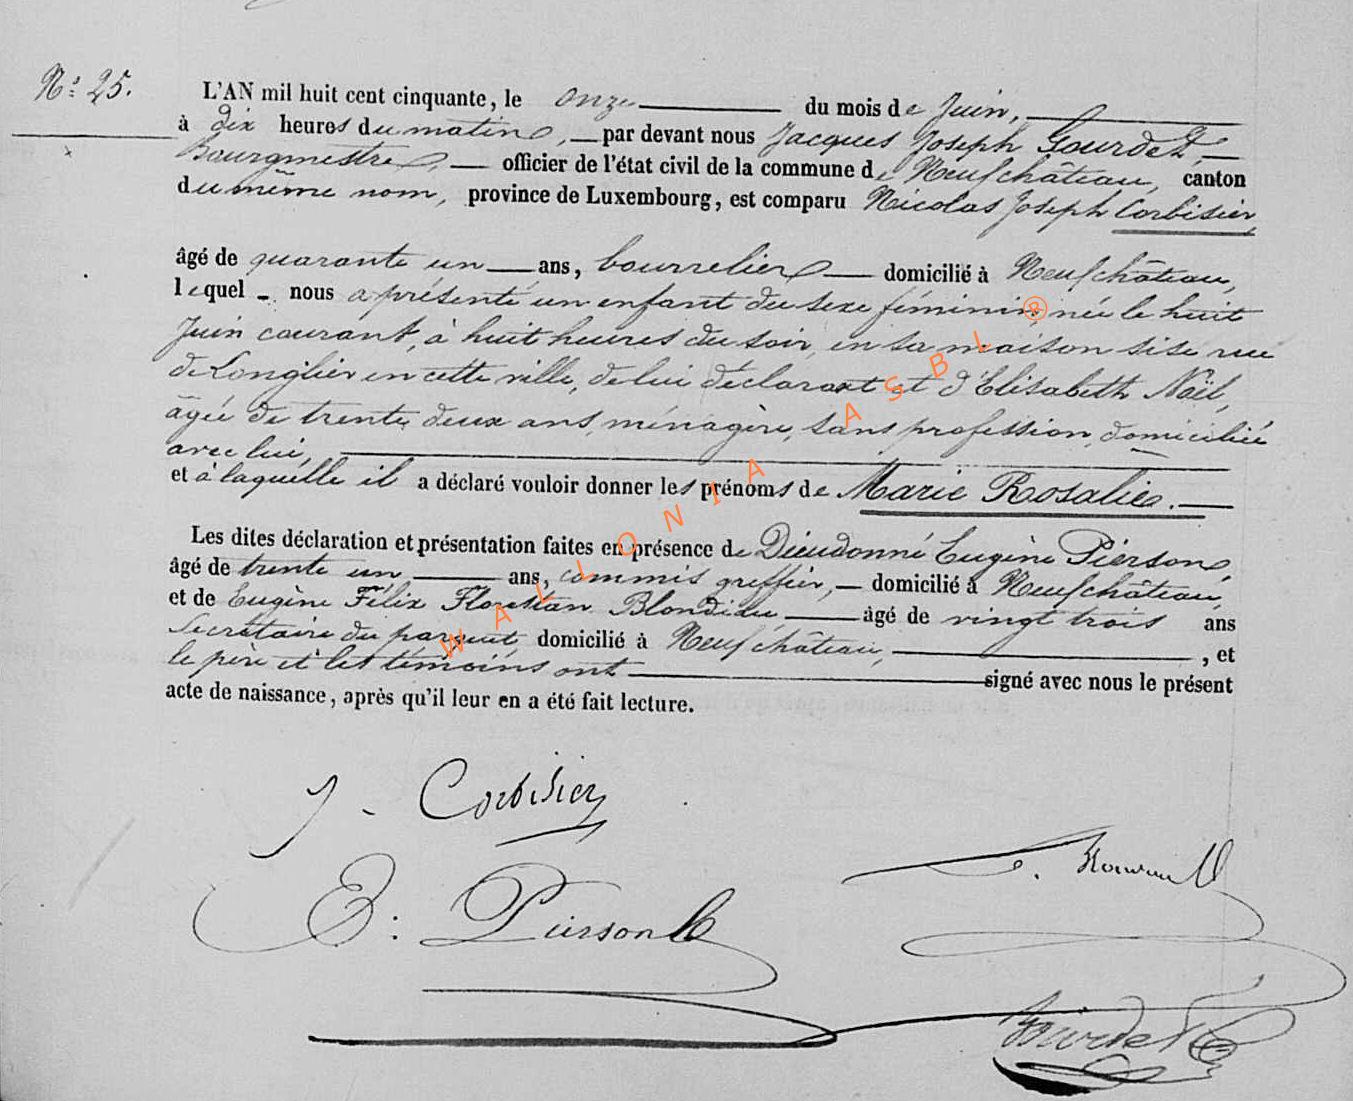 N° 25.
L'AN mil huit cent cinquante, le onze du mois de Juin,
à dix heures du matin, par devant nous Jacques Joseph Gourdet,
Bourgmestre, officier de l'état civil de la commune de Neufchâteau, canton
du même nom, province de Luxembourg, est comparu Nicolas Joseph Corbisier
âgé de quarante un ans, bourrelier domicilié à Neufchâteau,
lequel nous a présenté un enfant du sexe féminin, née le huit
Juin courant, à huit heures du soir, en sa maison sise rue
de Longlier en cette ville, de lui déclarant et d'Elisabeth Noël,
âgée de trente deux ans, ménagère, sans profession, domiciliée
avec lui,
et à laquelle il a déclaré vouloir donner les prénoms de Marie Rosalie.
Les dites déclaration et présentation faites en présence de Dieudonné Eugène Pierson,
âgé de trente un ans, commis greffier, domicilié à Neufchâteau,
et de Eugène Félix Blondiau âgé de vingt trois ans
Secrétaire du parquet, domicilié à Neufchâteau, et
le père et les témoins ont signé avec nous le présent
acte de naissance, après qu'il leur en a été fait lecture.
J - Corbisier
E. Pierson
Gourdet
WALLONIA ASBL ®